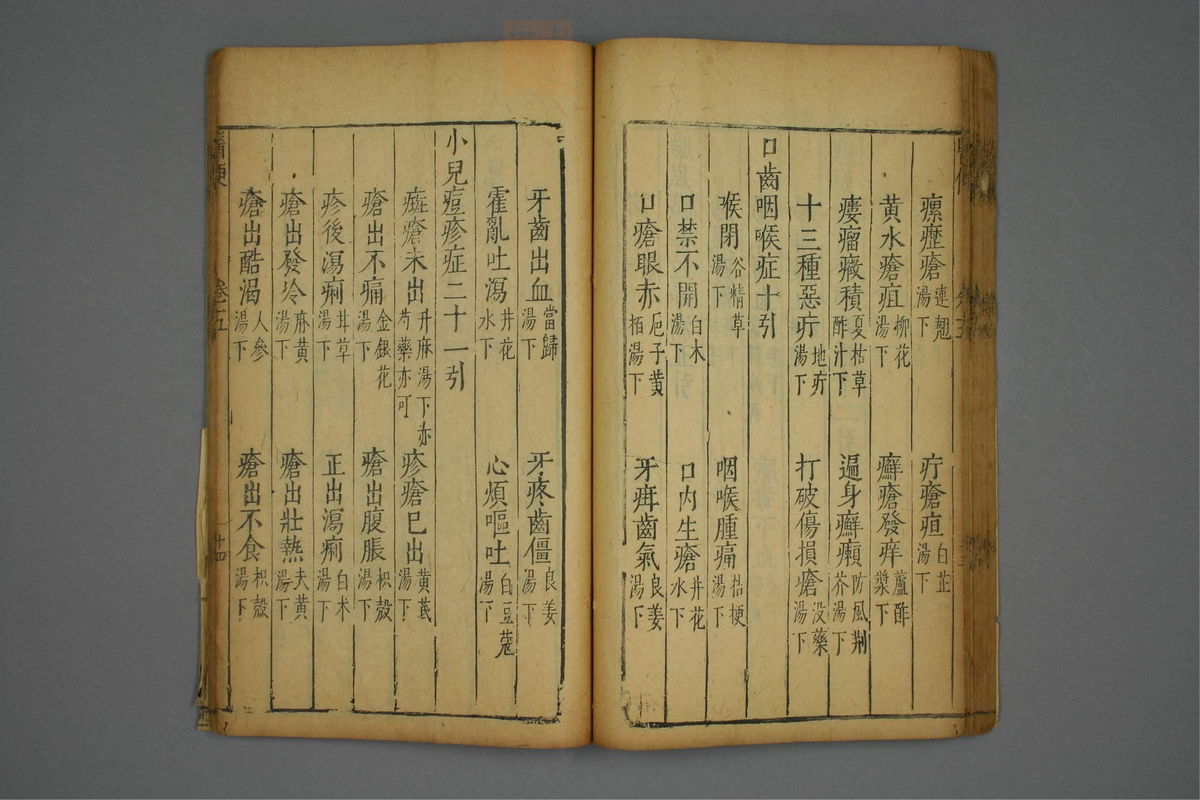 瘰癧瘡連翹湯下 疔瘡疽白芷湯下
黄水瘡疽柳花湯下 癬瘡發痒蘆酢漿下
瘻瘤癥積夏枯草酢汁下 遍身癬癩防風荆芥湯下
十三種惡疔地疔湯下 打破傷損瘡没藥湯下
口齒咽喉症十引
喉閉谷精草湯下 咽喉腫痛桔梗湯下
口禁不開白木湯下 口内生瘡井花水下
口瘡眼赤巵子黄栢湯下 牙疳齒氣良姜湯下
牙齒出血當歸湯下 牙疼齒僵良姜湯下
霍亂吐瀉井花水下 心煩嘔吐白豆蔻湯下
小兒痘疹症二十一引
痘瘡未出升麻湯下赤芍藥亦可 疹瘡已出黄茋湯下
瘡出不痛金銀花 瘡出腹脹枳殼湯下
疹後瀉痢甘草湯下 正出瀉痢白木湯下
瘡出發冷麻黄湯下 瘡出壯熱大黄湯下
瘡出酷渴人參湯下 瘡出不食枳殼湯下
醫便 卷五 廿四